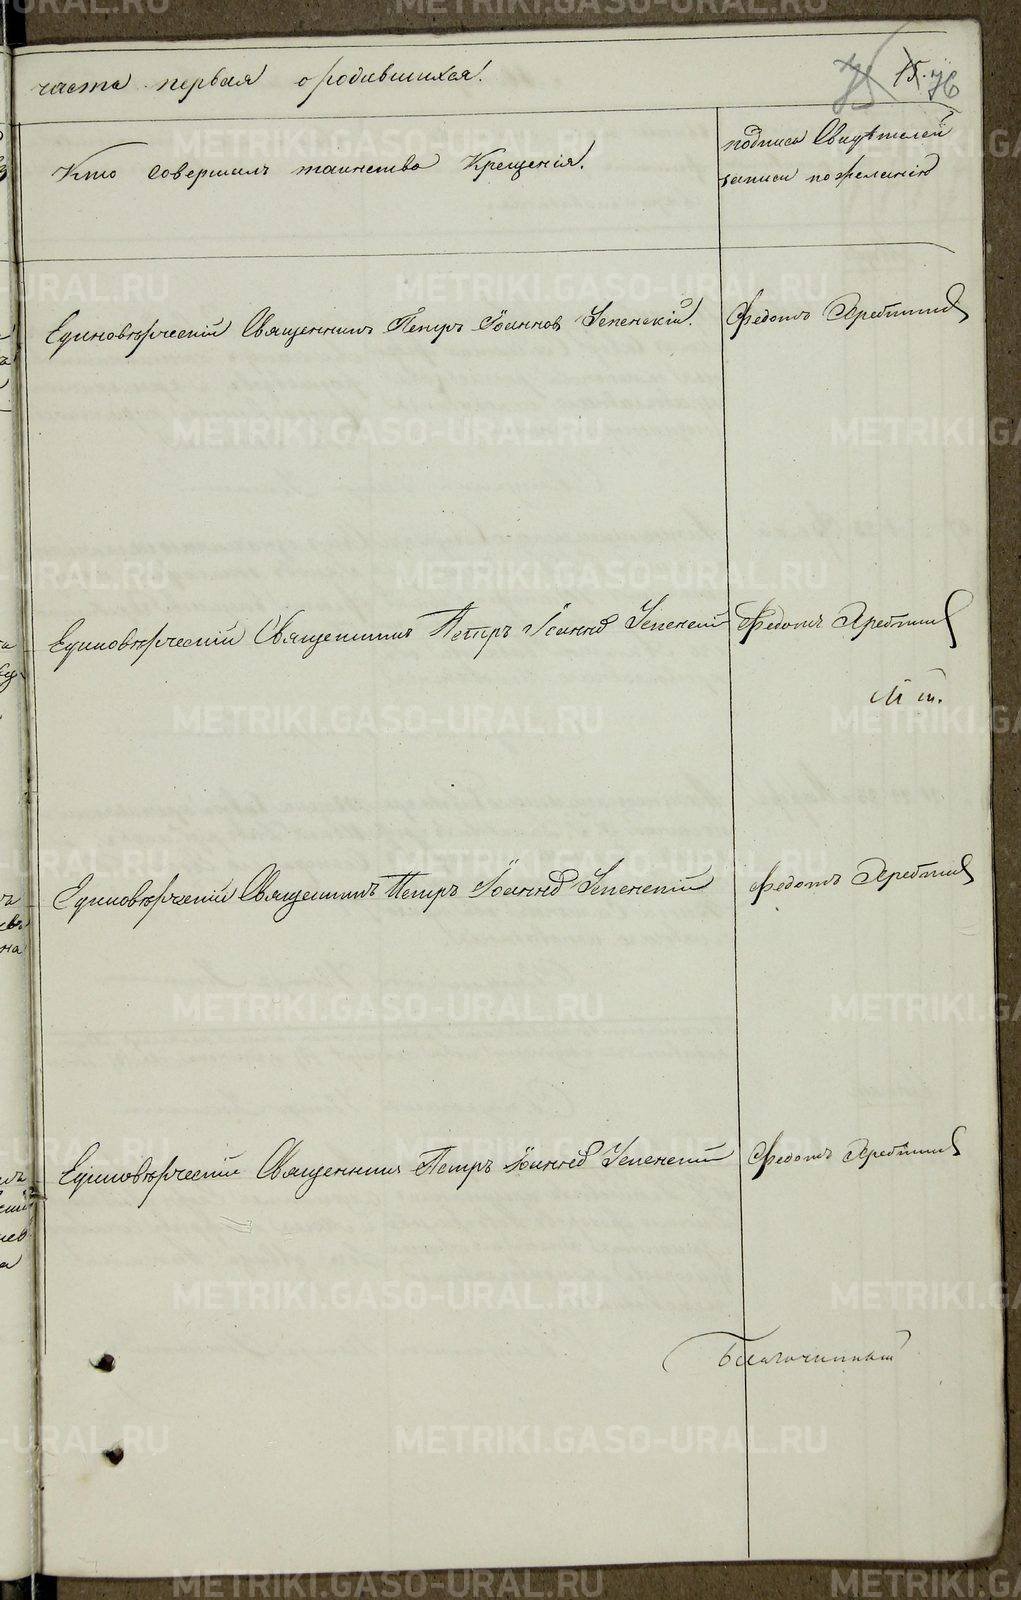 часть первая о родившихся.
15. 76
Кто Совершилъ таинство Крещенія.
подпись Свидѣтелей
записи по желанію
Единовѣрческій Священникъ Петръ Іоанновъ Успенскій.
Федотъ
Единовѣрческій Священникъ Петръ Іоаннов Успенскій
Федотъ
Единовѣрческій Священникъ Петръ Іоаннов Успенскій
Федотъ
Единовѣрческій Священникъ Петръ Іоаннов Успенскій
Федотъ
Благочинный
METRIKI.GASO-URAL.RU